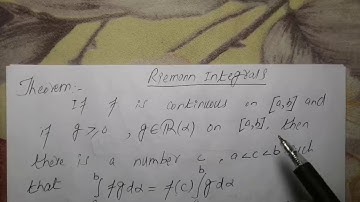 Riemann Integrals
Theorem:-
If f is continuous on [a,b] and
if g ≥ 0, g ∈ R(α) on [a,b], then
there is a number c, a<c<b such
that ∫ₐᵇ fg dα = f(c) ∫ₐᵇ g dα